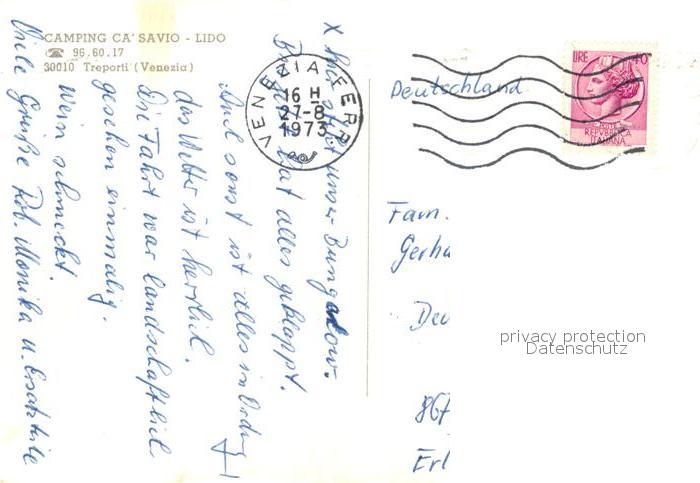 CAMPING CA' SAVIO - LIDO
☎ 96.60.17
30010 Treporti (Venezia)
VENEZIA FERR
16 H
27-8
1973
LIRE 40
POSTE
REPVBBLICA
ITALIANA
Deutschland
X steht unser Bungalow.
hat alles geklappt.
Auch sonst ist alles in Ordng
das Wetter ist herrlich.
Die Fahrt war landschaftlich
gesehen einmalig.
Wein schmeckt.
Viele Grüße Rob. Monika u.
Fam.
Gerha
867
Erl
privacy protection
Datenschutz